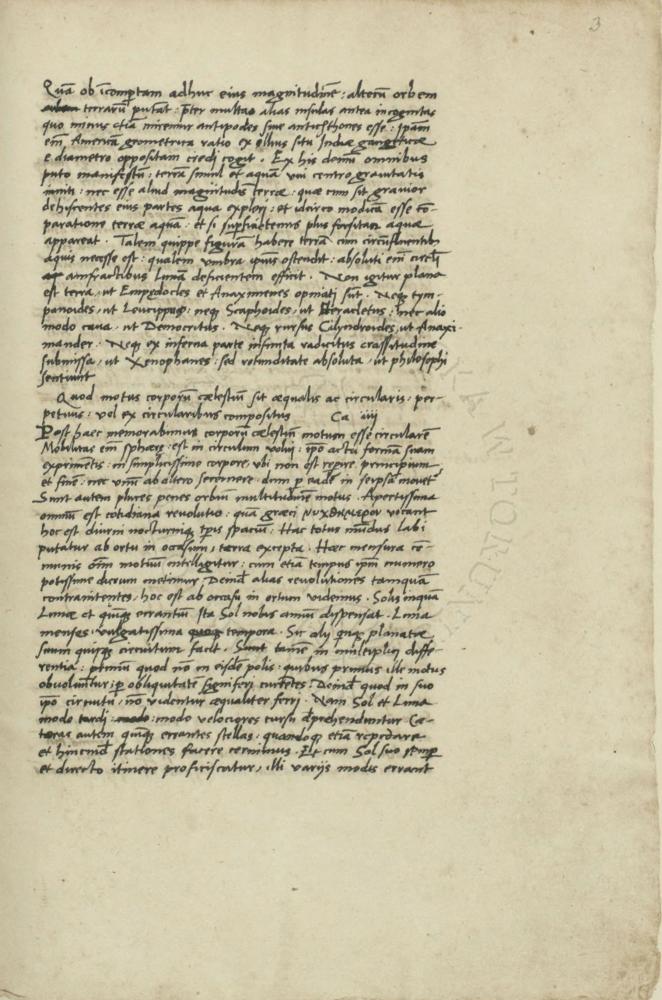 3
Quā ob icomptam adhuc eius magnitudinē : alterū orbem
terrarū putāt : p̄ter multas alias insulas antea incognitas
quo minus etiā miremur antipodes siue antichthones esse : Ipsam
em̄ Americā geometrica ratio ex illius situ Indiæ gangeticæ
e diametro oppositam credi cogit . Ex his demū omnibus
puto manifestū : terrā simul et aquā vni centro grauitatis
inniti : nec esse aliud magnitudinis terræ : quæ cum sit grauior
dehiscentes eius partes aqua expleri : et idcirco modicā esse cō-
paratione terræ aquā : et si supficietenus plus forsitan aquæ
appareat . Talem quippe figurā habere terrā cum circūfluentibus
aquis necesse est : qualem vmbra ipsius ostendit : absoluti em̄ circuli
amfractibus Lunā deficientem efficit . Non igitur plana
est terra , ut Empedocles et Anaximenes opinati sūt . Neq tym-
panoides , ut Leucippus : neq Scaphoides , ut Heracletus : nec alio
modo caua , ut Democritus . Neq rursus Cilyndroides , ut Anaxi-
mander . Neq ex inferna parte infinita radicitus crassitudine
submissa , ut Xenophanes : sed rotunditate absoluta , ut philosophi
sentiunt
Quod motus corporū cælestiū sit æqualis ac circularis : per-
petuus : vel ex circularibus compositus Ca iiij
Post hæc memorabimus corporū cælestiū motum esse circularē
Mobilitas em̄ sphæræ : est in circulum volui : ipo actu formā suam
exprimētis : in simplicissimo corpore , vbi non est reperire principium
et finē : nec vnū ab altero secernere : dum p eadē in seipsā mouet̄
Sunt autem plures penes orbiū multitudinē motus . Apertissima
omniū est cotidiana reuolutio : quā græci νυχθημερον vocant
hoc est diurni nocturniq tp̄is spaciū . Hac totus mūdus labi
putatur ab ortu in occasum , terra excepta . Hæc mensura cō-
munis oīm motuū intelligitur : cum etiā tempus ipm̄ numero
potissime dierum metimur . Deinde alias reuolutiones tamquā
contranitentes , hoc est ab occasu in ortum videmus . Solis inquā
Lunæ et quīq errantiū . Ita Sol nobis annū dispensat . Luna
menses , vulgatissima tempora . Sic alij quīq planetæ
suum quisq circuitum facit . Sunt tamē in multiplici diffe-
rentia : primū quod nō in eisdē polis : quibus primus ille motus
obuoluūtur : p obliquitatē signiferi currētes . Deinde quod in suo
ipo circuitu , nō videntur æqualiter ferrj . Nam Sol et Luna
modo tardi : modo velociores cursu dep̄hendūntur . Cæ-
teras autem quīq errantes stellas , quandoq etiā repedare
et hincinde stationes facere cernimus . Et cum Sol suo semp
et directo itinere proficiscatur , illi varijs modis errant